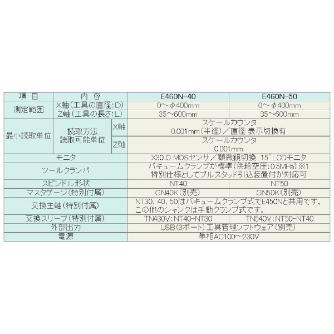 項 目 内 容 E460N-40 E460N-50
測定範囲 X軸(工具の直径:D) 0～φ400mm 0～φ400mm
Z軸(工具の長さ:L) 35～600mm 35～600mm
最小読取単位 読取方法 読取可能単位 X軸 スケールカウンタ
0.001mm(半径)/直径 表示切換有
Z軸 スケールカウンタ
0.001mm
モニタ X30 C-MOSセンサ/顕微鏡切換 15" LCDモニタ
ツールクランパ バキュームクランプが標準(供給空圧:0.5MPa)※1
特別仕様としてプルスタッド引込装置付が対応可
スピンドル形状 NT40 NT50
マスタゲージ(特別付属) GN40K(別売) GN50K(別売)
交換主軸(特別付属) NT30, 40, 50はバキュームクランプ式でE450Nと共用です。
この他のシャンクは手動クランプ式です。
交換スリーブ(特別付属) TN430V:NT40-NT30 TN540V:NT50-NT40
外部出力 USB(3ポート)工具管理ソフトウェア(別売)
電源 単相AC100～230V